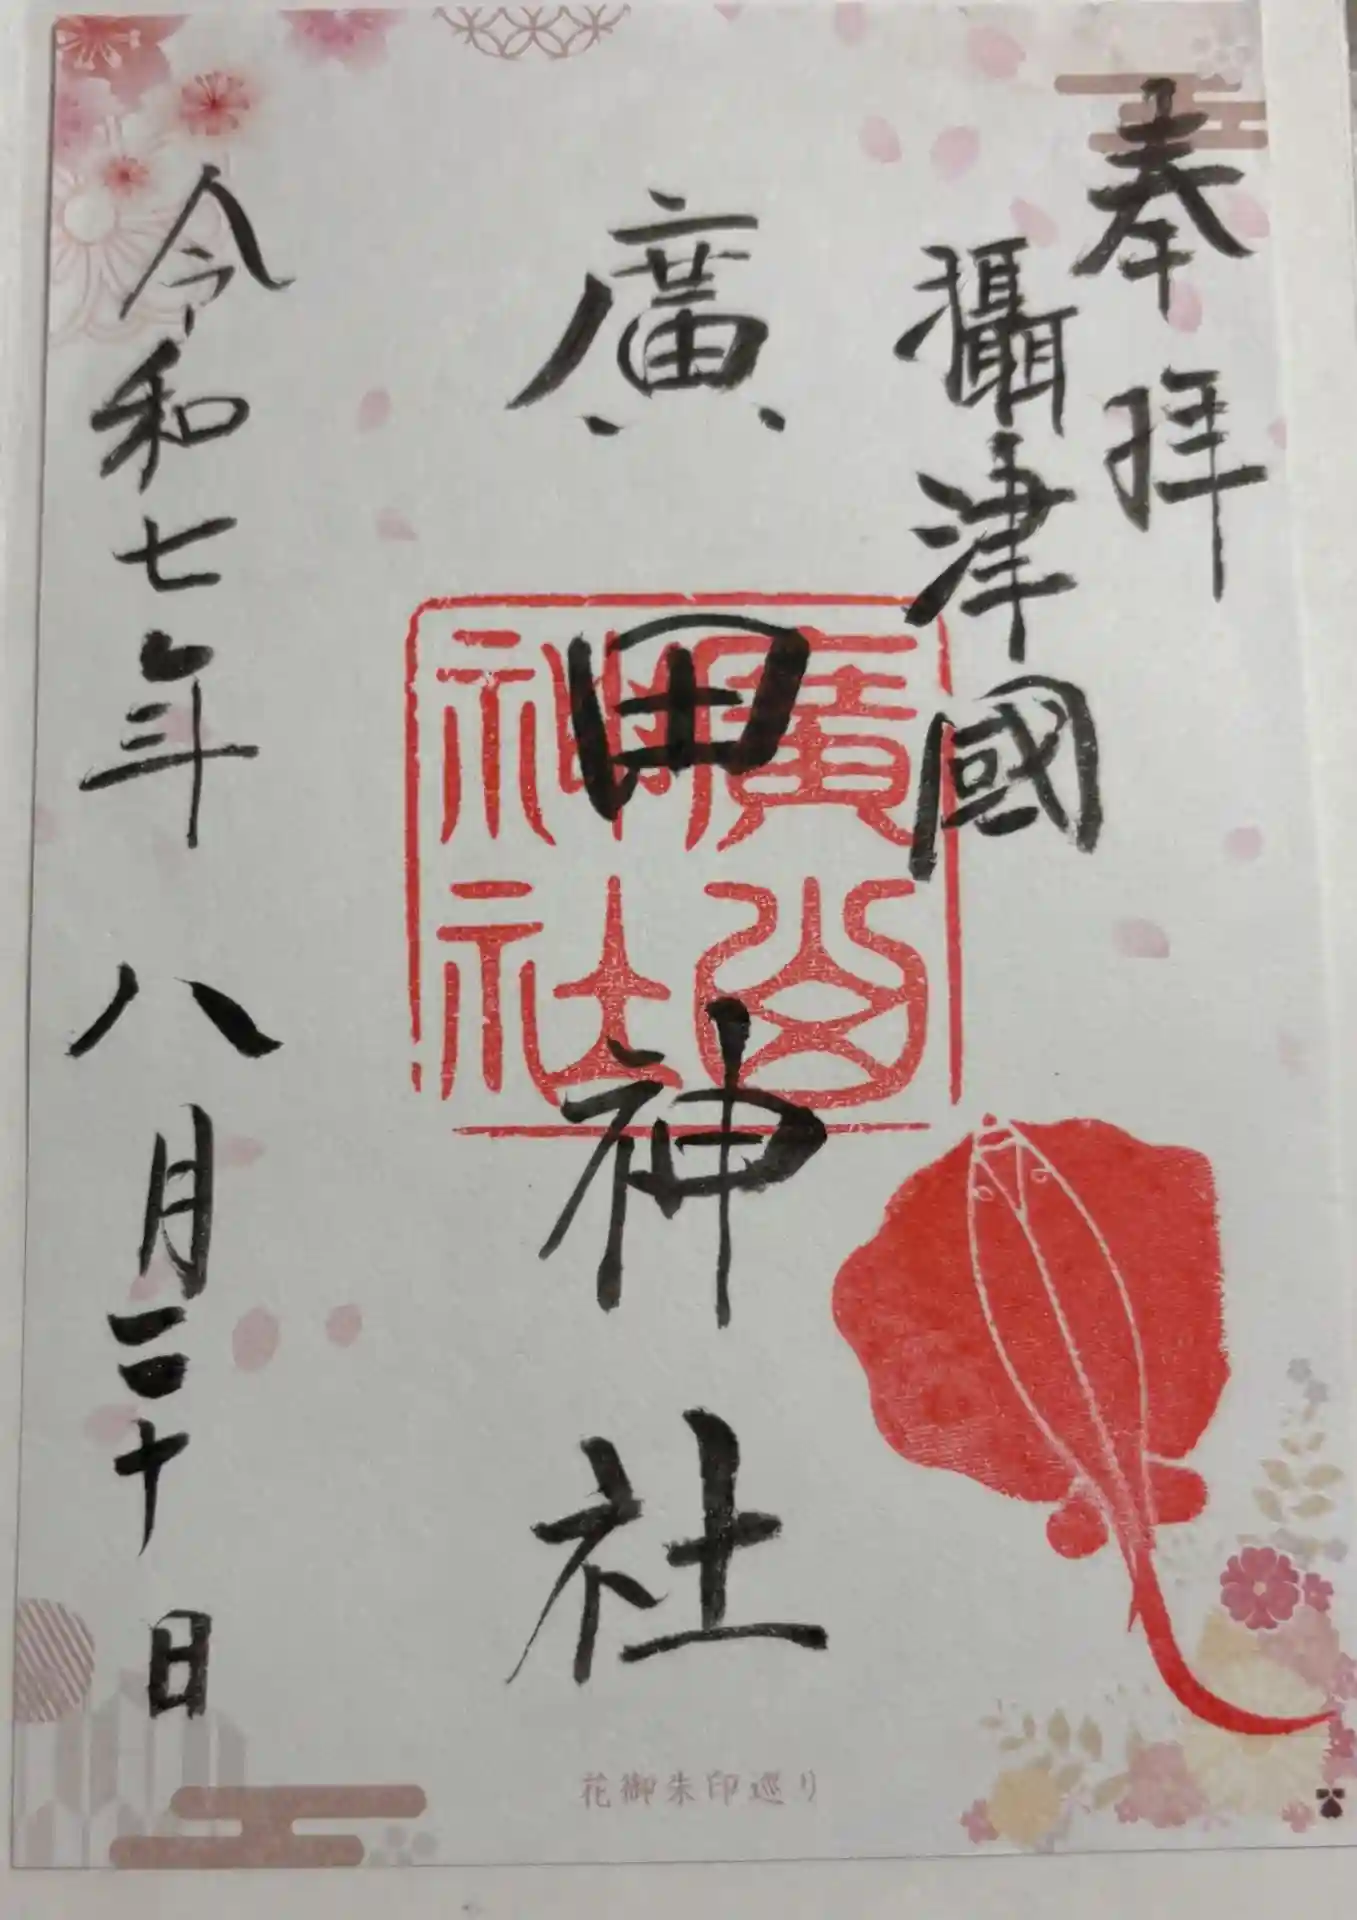 奉拝
攝津國
廣田神社
廣田神社
令和七年八月二十日
花御朱印巡り